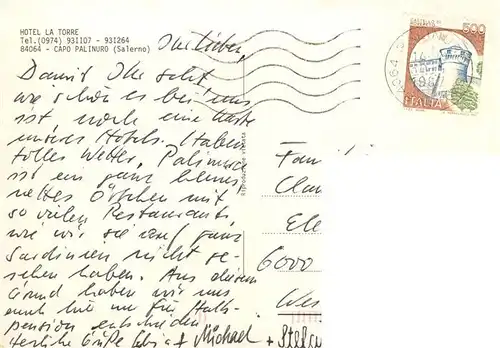 HOTEL LA TORRE
Tel.(0974) 931107 - 931264
84064 - CAPO PALINURO (Salerno)
Ihr Lieben,
Damit Ihr seht
wie schön es bei uns
ist noch eine Karte
unseres Hotels. Italien
tolles Wetter, Palinuro
ist ein ganz
nettes Örtchen mit
so vielen Restaurants,
wie wir sie auf ganz
Sardinien nicht ge-
sehen haben. Aus diesem
Grund haben wir uns
auch nur für Halb-
pension entschieden
Herzliche Grüße
Michael
+ Stefa
Riproduzione vietata
500
ITALIA
Fam
Clau
Ele
6000
Wes